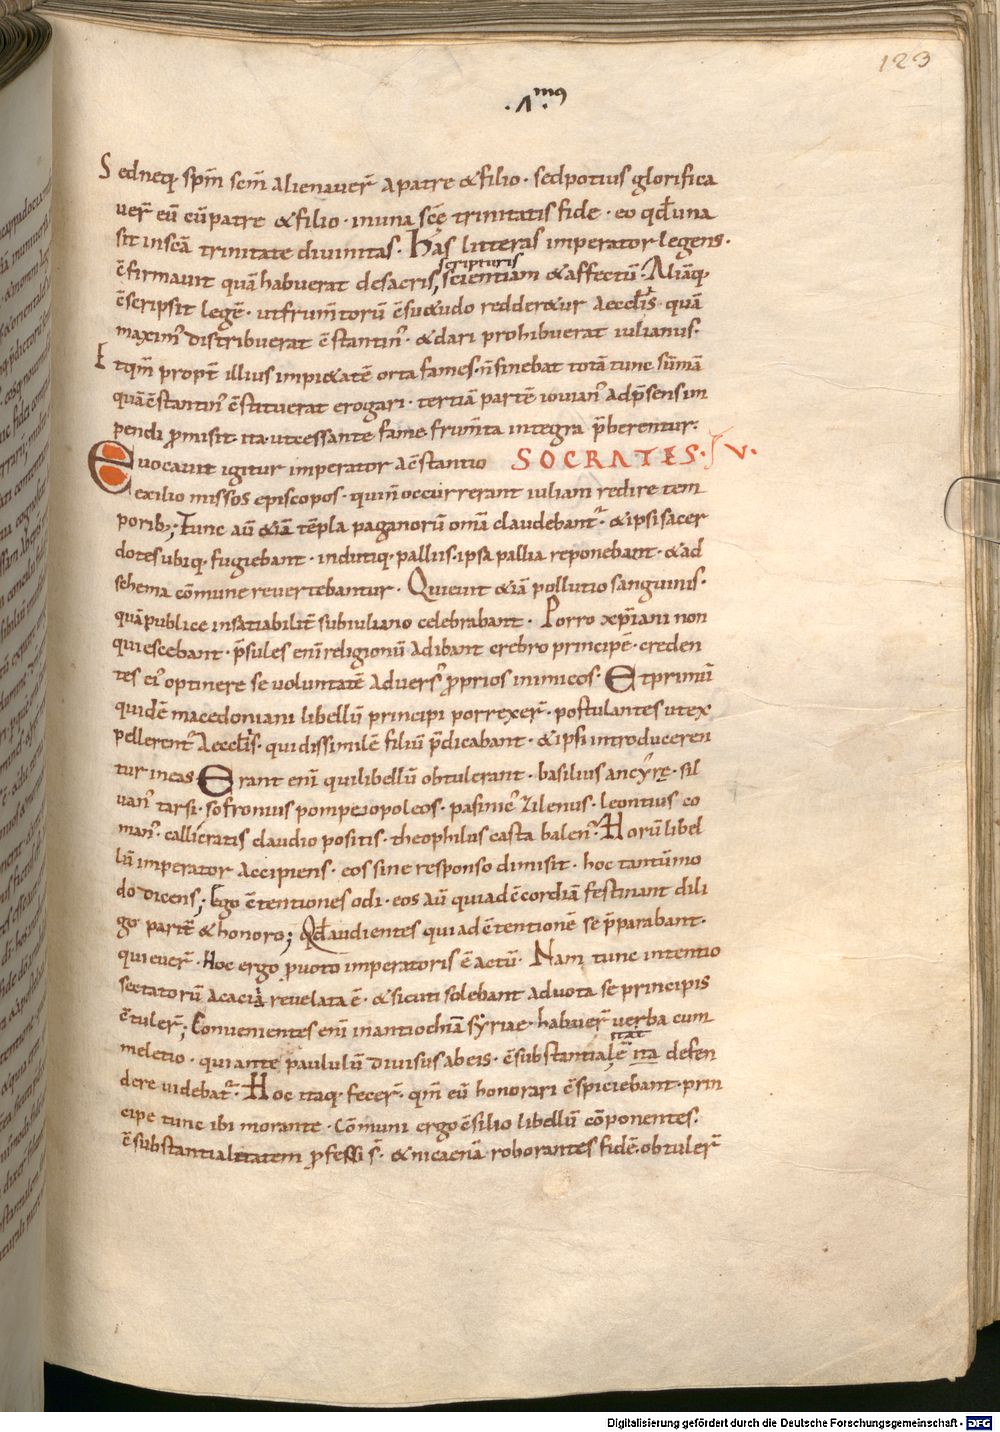 123
·Λ·mꝯ
Sed neq; sp̄m sc̄m alienauer̄ a patre & filio · sed potius glorifica
uer̄ eū cū patre & filio · in una sc̄ę trinitatis fide · eo qđ una
sit in sc̄a trinitate diuinitas · Has litteras imperator legens ·
scripturis
c̄firmauit quā habuerat de sacris, scientiam & affectū · Aliāq;
c̄scripsit legē · ut frum̄torū c̄suetudo redderetur aeccl̄is · quā
maximꝰ distribuerat c̄stantinꝰ · & dari prohibuerat iulianus ·
Et qm̄ propt̄ illius impietatē orta fames · n̄ sinebat totā tunc sūmā
quā c̄stantinꝰ c̄stituerat erogari · tertiā partē iouianꝰ ad p̄sens im
pendi p̄misit · ita ut cessante fame frum̄ta integra p̄berentur :
Euocauit igitur imperator a c̄stantio SOCRATES · V ·
exilio missos episcopos · qui n̄ occurrerant iuliani redire tem
porib; ; Tunc aū & iā tēpla paganorū om̄a claudebantᷣ · & ipsi sacer
dotes ubiq; fugiebant · indutiq; palliis · ipsa pallia reponebant · & ad
schema cōmune reuertebantur · Quieuit & iā pollutio sanguinis ·
quā publice insatiabilit̄ sub iuliano celebrabant · Porro xp̄iani non
quiescebant · p̄sules eni religionū adibant crebro principē · creden
tes eiꝰ optinere se uoluntatē aduersꝰ p̄prios inimicos · Et primū
quidē macedoniani libellū principi porrexer̄ · postulantes ut ex
pellerentᷣ aeccl̄is · qui dissimilē filiū p̄dicabant · & ipsi introduceren
tur in eas · Erant eni qui libellū obtulerant · basilius ancyrę · sil
uanꝰ tarsi · sofronius pompeiopoleos · pasinicꝰ zilenus · leontius co
manꝰ · callicratis claudio positis · theophilus casta balenꝰ · Horū libel
lū imperator accipiens · eos sine responso dimisit · hoc tantū mo
do dicens ; Ego c̄tentiones odi · eos aū qui ad c̄cordiā festinant dili
go partē & honoro ; Qđ audientes qui ad c̄tentionē se p̄parabant ·
quieuer̄ · Hoc ergo p̄ uoto imperatoris ē actū · Nam tunc intentio
sectatorū acacii reuelata ē · & sicuti solebant ad uota se principis
c̄tuler̄ ; Conuenientes eni in antiochiā syriae · habuer̄ uerba cum
meletio · qui ante paululū diuisus ab eis · c̄substantialē ita defen
dere uidebatᷣ · Hoc itaq; fecer̄ · qm̄ eū honorari c̄spiciebant · prin
cipe tunc ibi morante · Cōmuni ergo c̄silio libellū cōponentes ·
c̄substantialitatem p̄fessi s̄ · & nicaenā roborantes fidē · obtuler̄
Digitalisierung gefördert durch die Deutsche Forschungsgemeinschaft - DFG